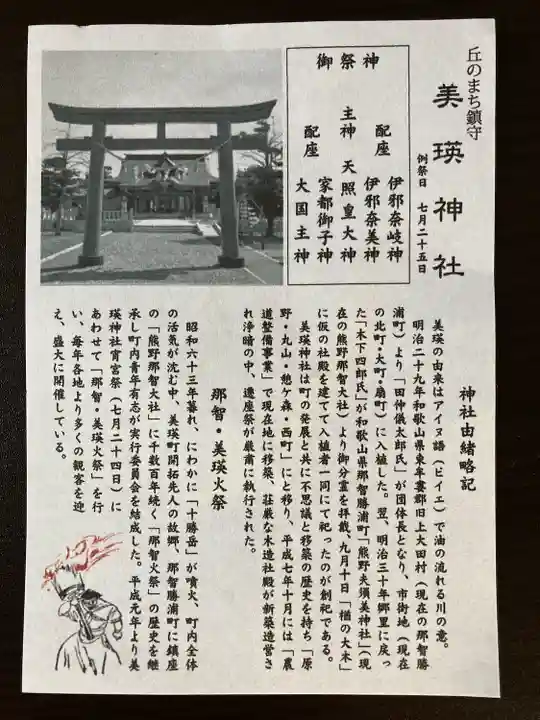 丘のまち鎮守
美瑛神社
例祭日 七月二十五日
御祭神
配座 伊邪奈岐神
伊邪奈美神
主神 天照皇大神
配座 家都御子神
大国主神
神社由緒略記
美瑛の由来はアイヌ語（ピイエ）で油の流れる川の意。
明治二十九年和歌山県東牟婁郡旧上太田村（現在の那智勝
浦町）より「田仲儀太郎氏」が団体長となり、市街地（現在
の北町・大町・扇町）に入植した。翌、明治三十年郷里に戻っ
た「木下四郎氏」が和歌山県那智勝浦町「熊野夫須美神社」（現
在の熊野那智大社）より御分霊を拝戴、九月十日「楢の大木」
に仮の社殿を建てて入植者一同にて祀ったのが創祀である。
美瑛神社は町の発展と共に不思議と移築の歴史を持ち「原
野・丸山・憩ケ森・西町」にと移り、平成七年十月には「農
道整備事業」で現在地に移築、荘厳な木造社殿が新築造営さ
れ浄暗の中、遷座祭が厳粛に執行された。
那智・美瑛火祭
昭和六十三年暮れ、にわかに「十勝岳」が噴火、町内全体
の活気が沈む中、美瑛町開拓先人の故郷、那智勝浦町に鎮座
の「熊野那智大社」に千数百年続く「那智火祭」の歴史を継
承し町内青年有志が実行委員会を結成した。平成元年より美
瑛神社宵宮祭（七月二十四日）に
あわせて「那智・美瑛火祭」を行
い、毎年各地より多くの観客を迎
え、盛大に開催している。